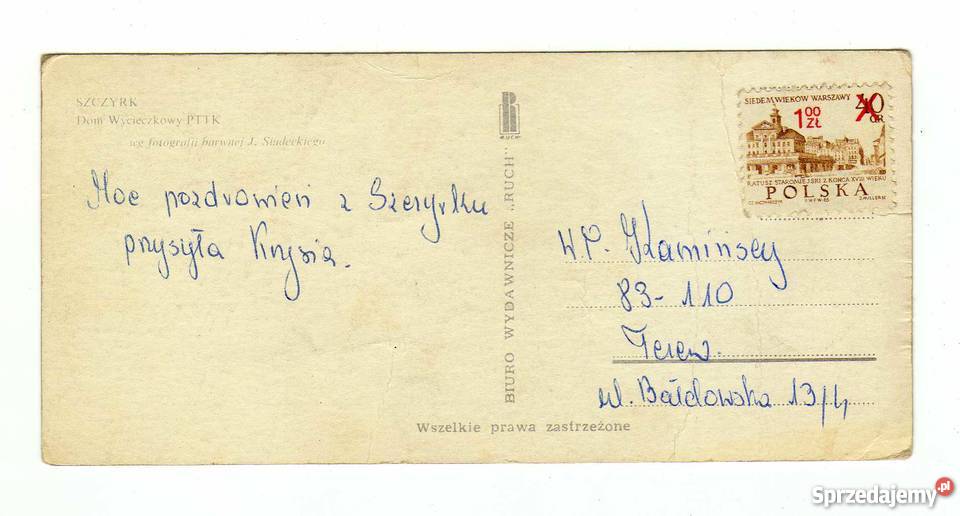 SZCZYRK
Dom Wycieczkowy PTTK
wg fotografii barwnej J. Siudeckiego
Moc pozdrowień z Szczyrku
przysyła Krysia.
BIURO WYDAWNICZE „RUCH"
RUCH
Wszelkie prawa zastrzeżone
SIEDEM WIEKÓW WARSZAWY
40 GR
1 00 ZŁ
RATUSZ STAROMIEJSKI Z KOŃCA XVIII WIEKU
POLSKA
PWPW-65
W.P. Kamińscy
83-110
Tczew.
ul. Bałdowska 13/4
Sprzedajemy.pl